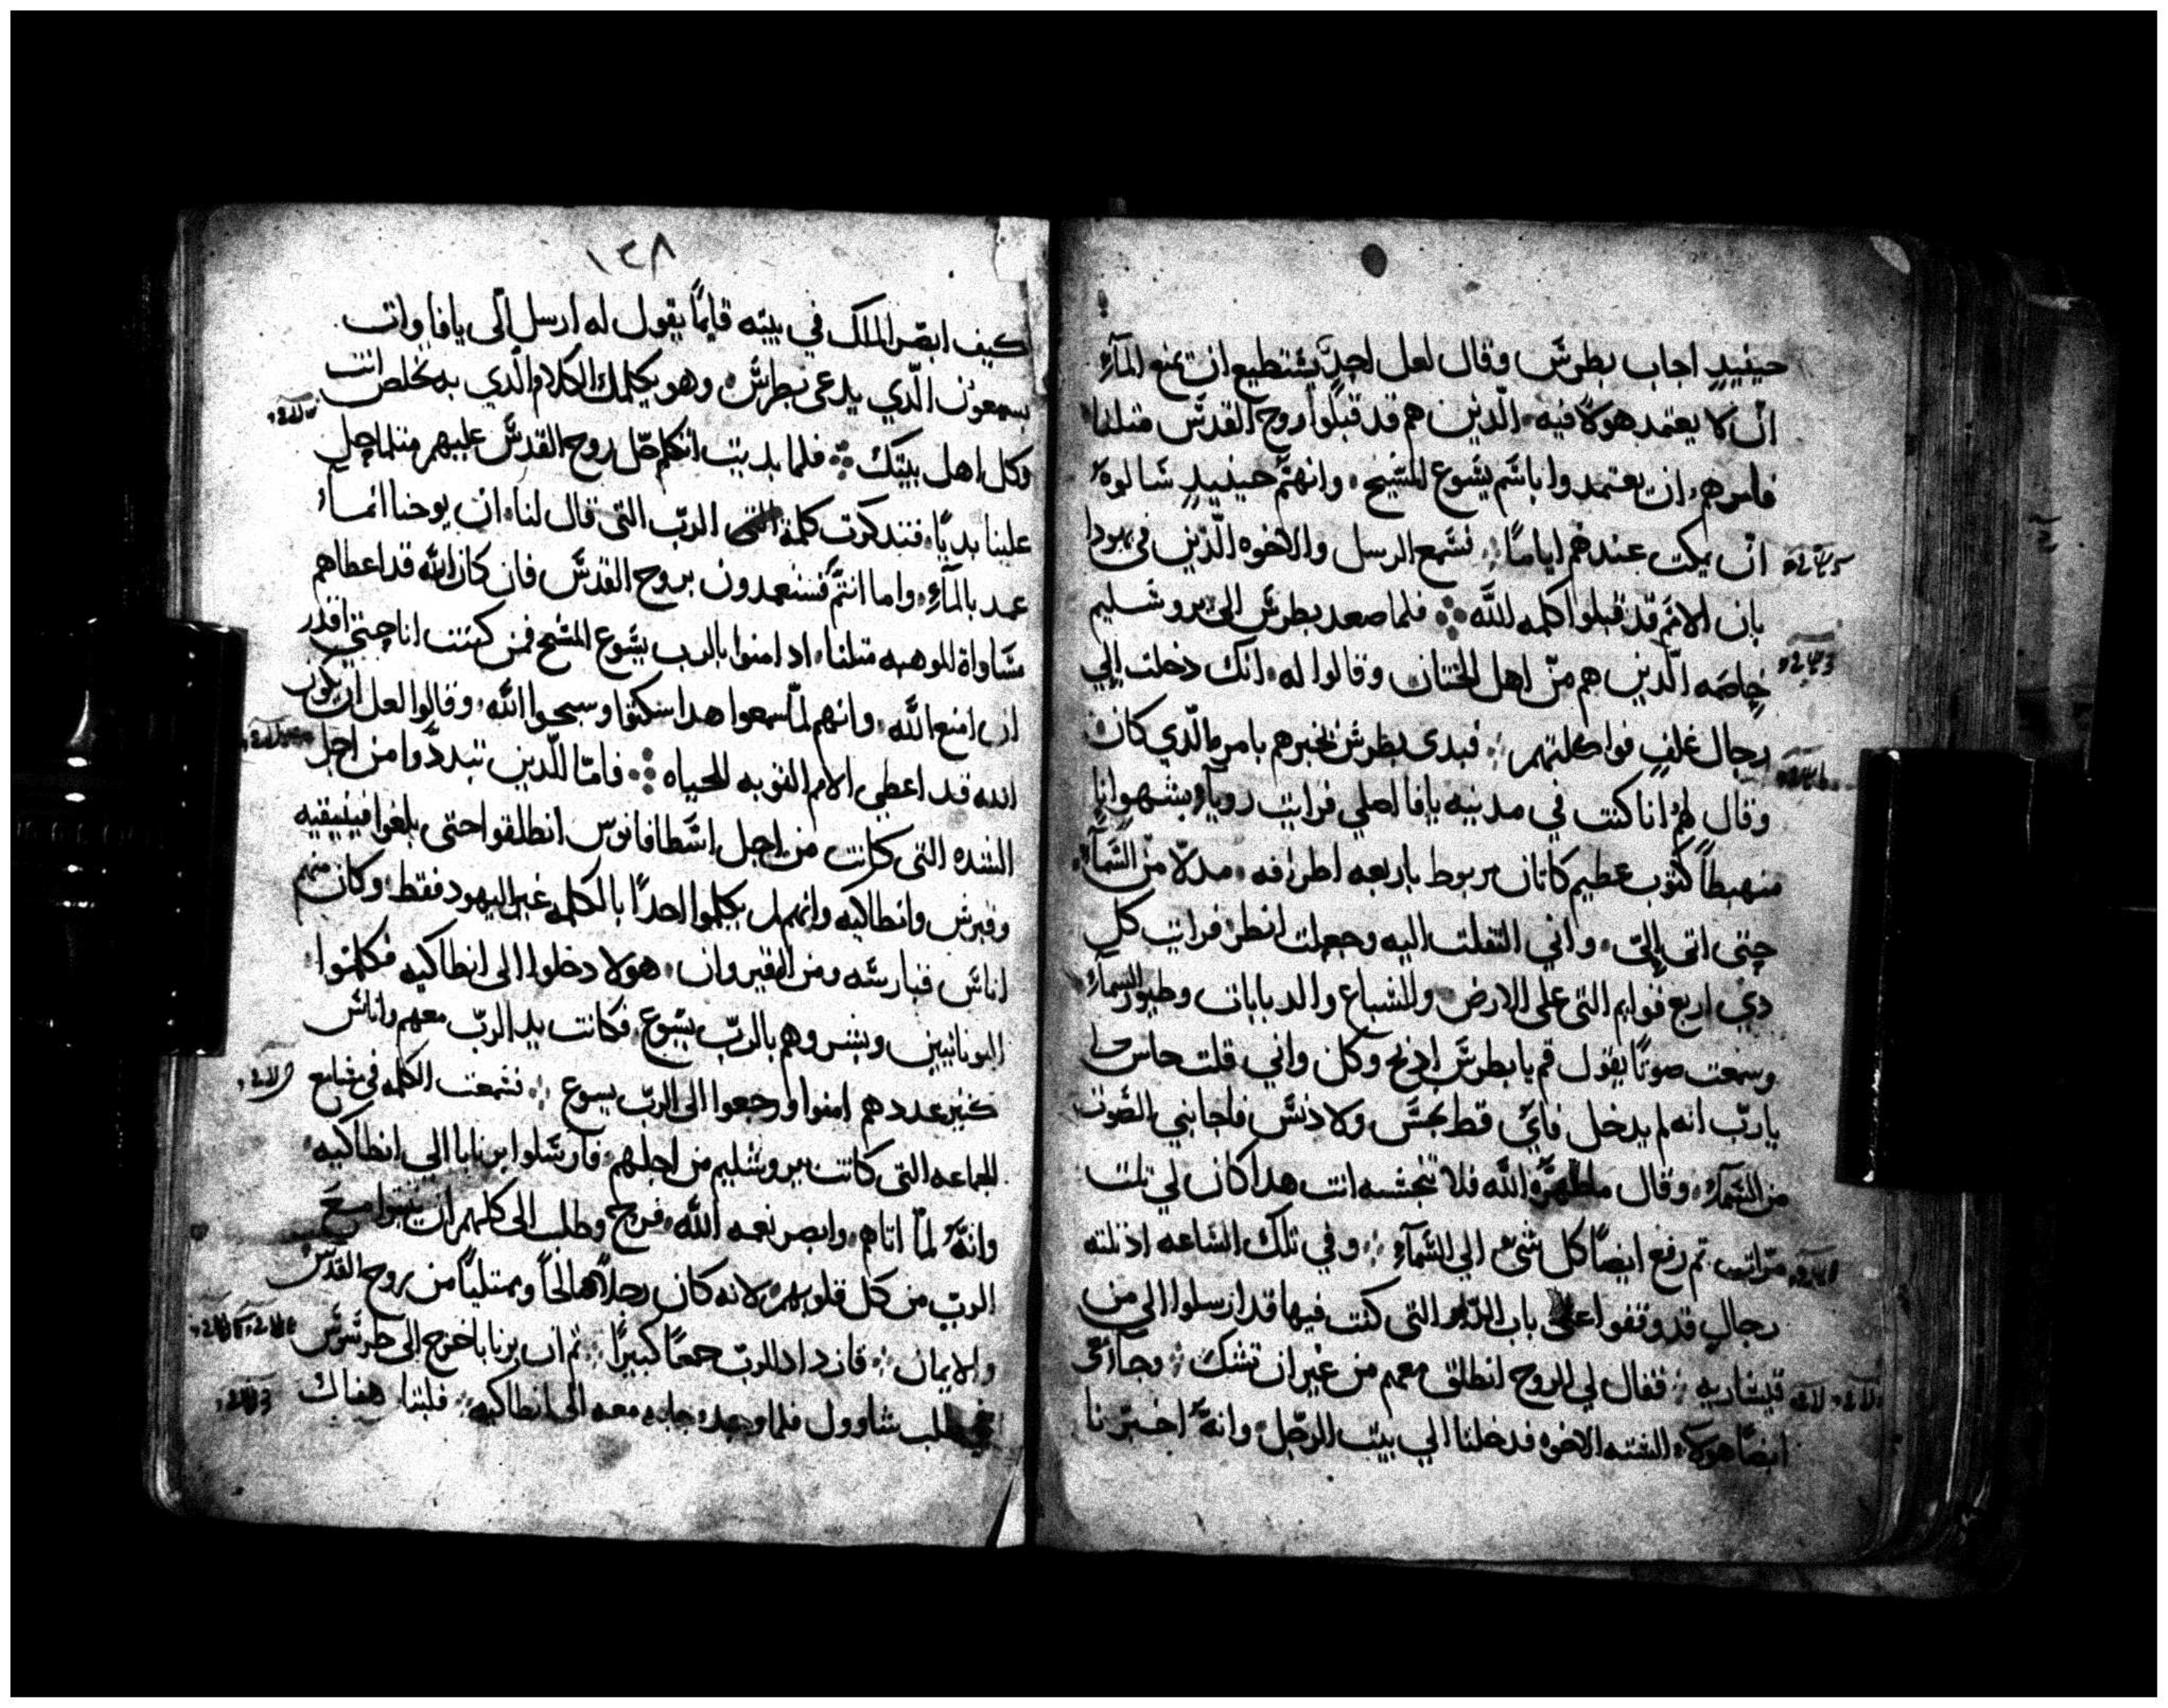 حينيدٍ اجاب بطرس وقال لعل احدٌ يستطيع ان يمنع المآء
ان لا يعتمد هولا فيه الذين هم قد قبلوا روح القدس متلنا
فامرهم ان يعتمدوا باسم يسوع المسيح وانهم حينيدٍ سالوه
ان يمكت عندهم اياماً فسمع الرسل والاخوه الذين في يهودا
بان الامم قد قبلوا كلمه الله فلما صعد بطرس الى يروشليم
خاصمه الذين هم من اهل الختان وقالوا له انك دخلت إلي
رجال غلفٍ فواكلتهم فبدى بطرس يخبرهم بامره الذي كان
وقال لهم انا كنت في مدينه يافا اصلي فرايت رويآء بشهو انا
منهبطاً كثوب عظيم كاتان مربوط باربعه اطرافه مدلا من السمآء
حتى اتى إليّ واني التفلت اليه وجعلت انظر فرايت كل
دي اربع قوايم التى على الارض والسباع والدبابات وطيور السمآء
وسمعت صوتاً يقول قم يا بطرس ادبح وكل واني قلت حاس
يا ربّ انه لم يدخل فايَ قط نجس ولا دنس فاجابني الصوت
من السمآء وقال ما طهره الله فلا تنجسه انت هدا كان لي تلت
مرّات تم رفع ايضاً كل شيء الي السمآء وفي تلك الساعه اذ تلته
رجالٍ قد وقفوا على باب الدار التى كنت فيها قد ارسلوا الي من
قيساريه فقال لي الروح انطلق معهم من غير ان تشك وجاء معي
ايضاً هولاء السته الاخوه فدخلنا الي بيت الرجل وانه اخبرنا
١٣٨
كيف ابصر الملاك في بيته قايماً يقول له ارسل الى يافا وات
بسمعون الّذي يدعى بطرس وهو يكلمك الكلام الّذي به تخلص انت
وكل اهل بيتك فلما بديت اتكلم حلّ روح القدس عليهم متلما حل
علينا بديًا فتدكرت كلمة الربّ التى قال لنا ان يوحنا انما
عمد بالمآء واما انتم فستعمدون بروح القدس فان كان الله قد اعطاهم
مساواة الموهبه متلنا اد امنوا بالرب يسوع المسيح فمن كنت انا حتى اقدر
ان امنع الله وانهم لمّا سمعوا هدا سكتوا وسبحوا الله وقالوا لعل ان يكون
الله قد اعطي الامم التوبه للحياه فامّا الّذين تبددوا من اجل
الشده التى كانت من اجل اسطافانوس انطلقوا حتى بلغوا فينيقيه
وقبرس وانطاكيه وانهم لم يكلموا احداً بالكلمه غير اليهود فقط وكان منهم
اناس قبارسه ومن القيروان هولا دخلوا الى انطاكيه فكلموا
اليونانيين وبشروهم بالربّ يسوع فكانت يد الربّ معهم واناس
كتير عددهم امنوا ورجعوا الى الربّ يسوع فسمعت الكلمه في مسامع
الجماعه التى كانت بيروشليم من اجلهم فارسلوا برنابا الي انطاكيه
وانهُ لمّا اتاهم وابصر نعمه الله فرح وطلب الى كلهم ان يثبتوا مع
الربّ من كل قلوبهم لانه كان رجلاً صالحاً وممتلياً من روح القدس
والايمان فازداد للربّ جمعاً كبيراً تم ان برنابا خرج الى طرسوس
في طلب شاوول فلما وجده جابه معه الى انطاكيه فلبتا هناك